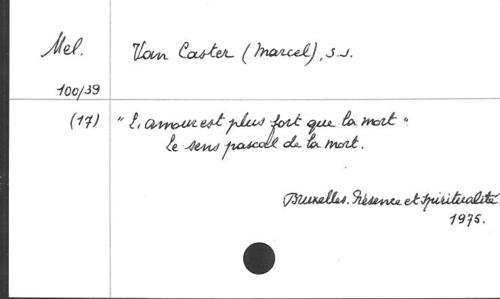 Mel. Van Caster (Marcel), s.j.
100/39
(17) "L'amour est plus fort que la mort".
Le sens pascal de la mort.
Bruxelles. Présence et spiritualité.
1975.